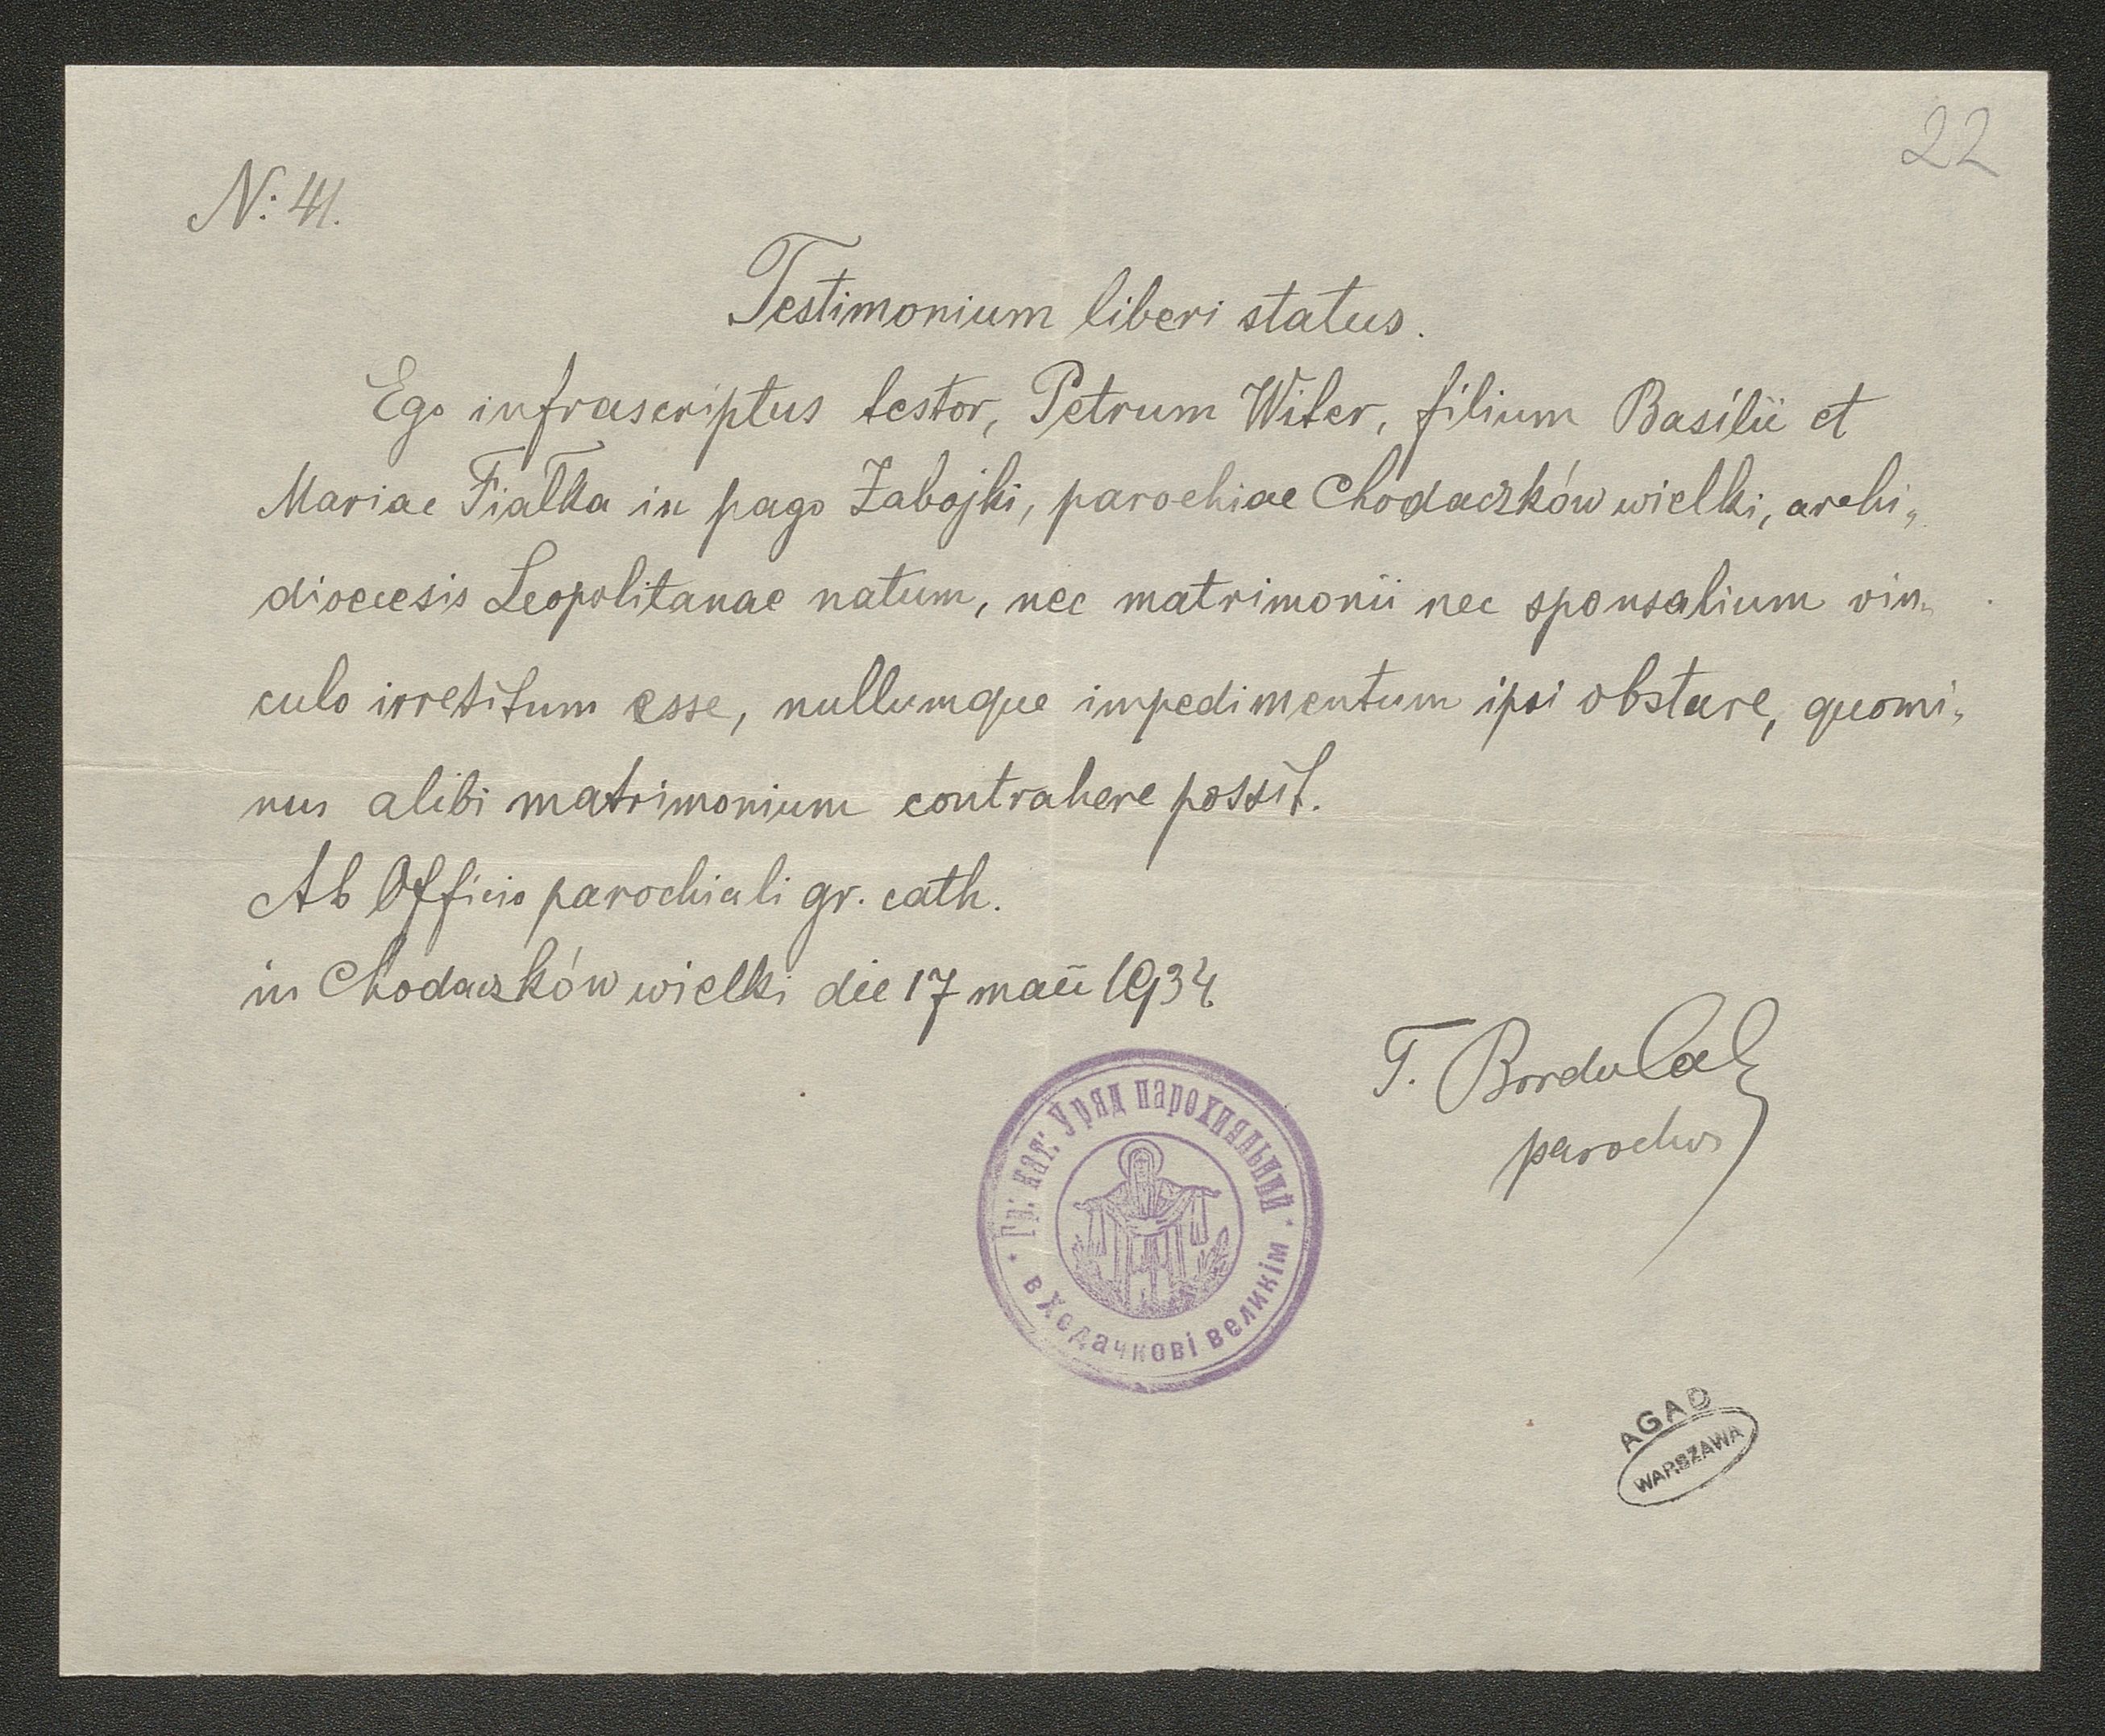 22
N: 41.
Testimonium liberi status.
Ego infrascriptus testor, Petrum Witer, filium Basilii et
Mariae Fiałka in pago Zabojki, parochiae Chodaczków wielki, archi„
dioecesis Leopolitanae natum, nec matrimonii nec sponsalium vin„
culo irretitum esse, nullumque impedimentum ipsi obstare, quomi„
nus alibi matrimonium contrahere possit.
Ab Officio parochiali gr. cath.
in Chodaczków wielki die 17 maii 1934.
T. Bordulak
parochus
Гр: кат: Уряд парохияльний
в Ходачкові великім
AGAD
WARSZAWA